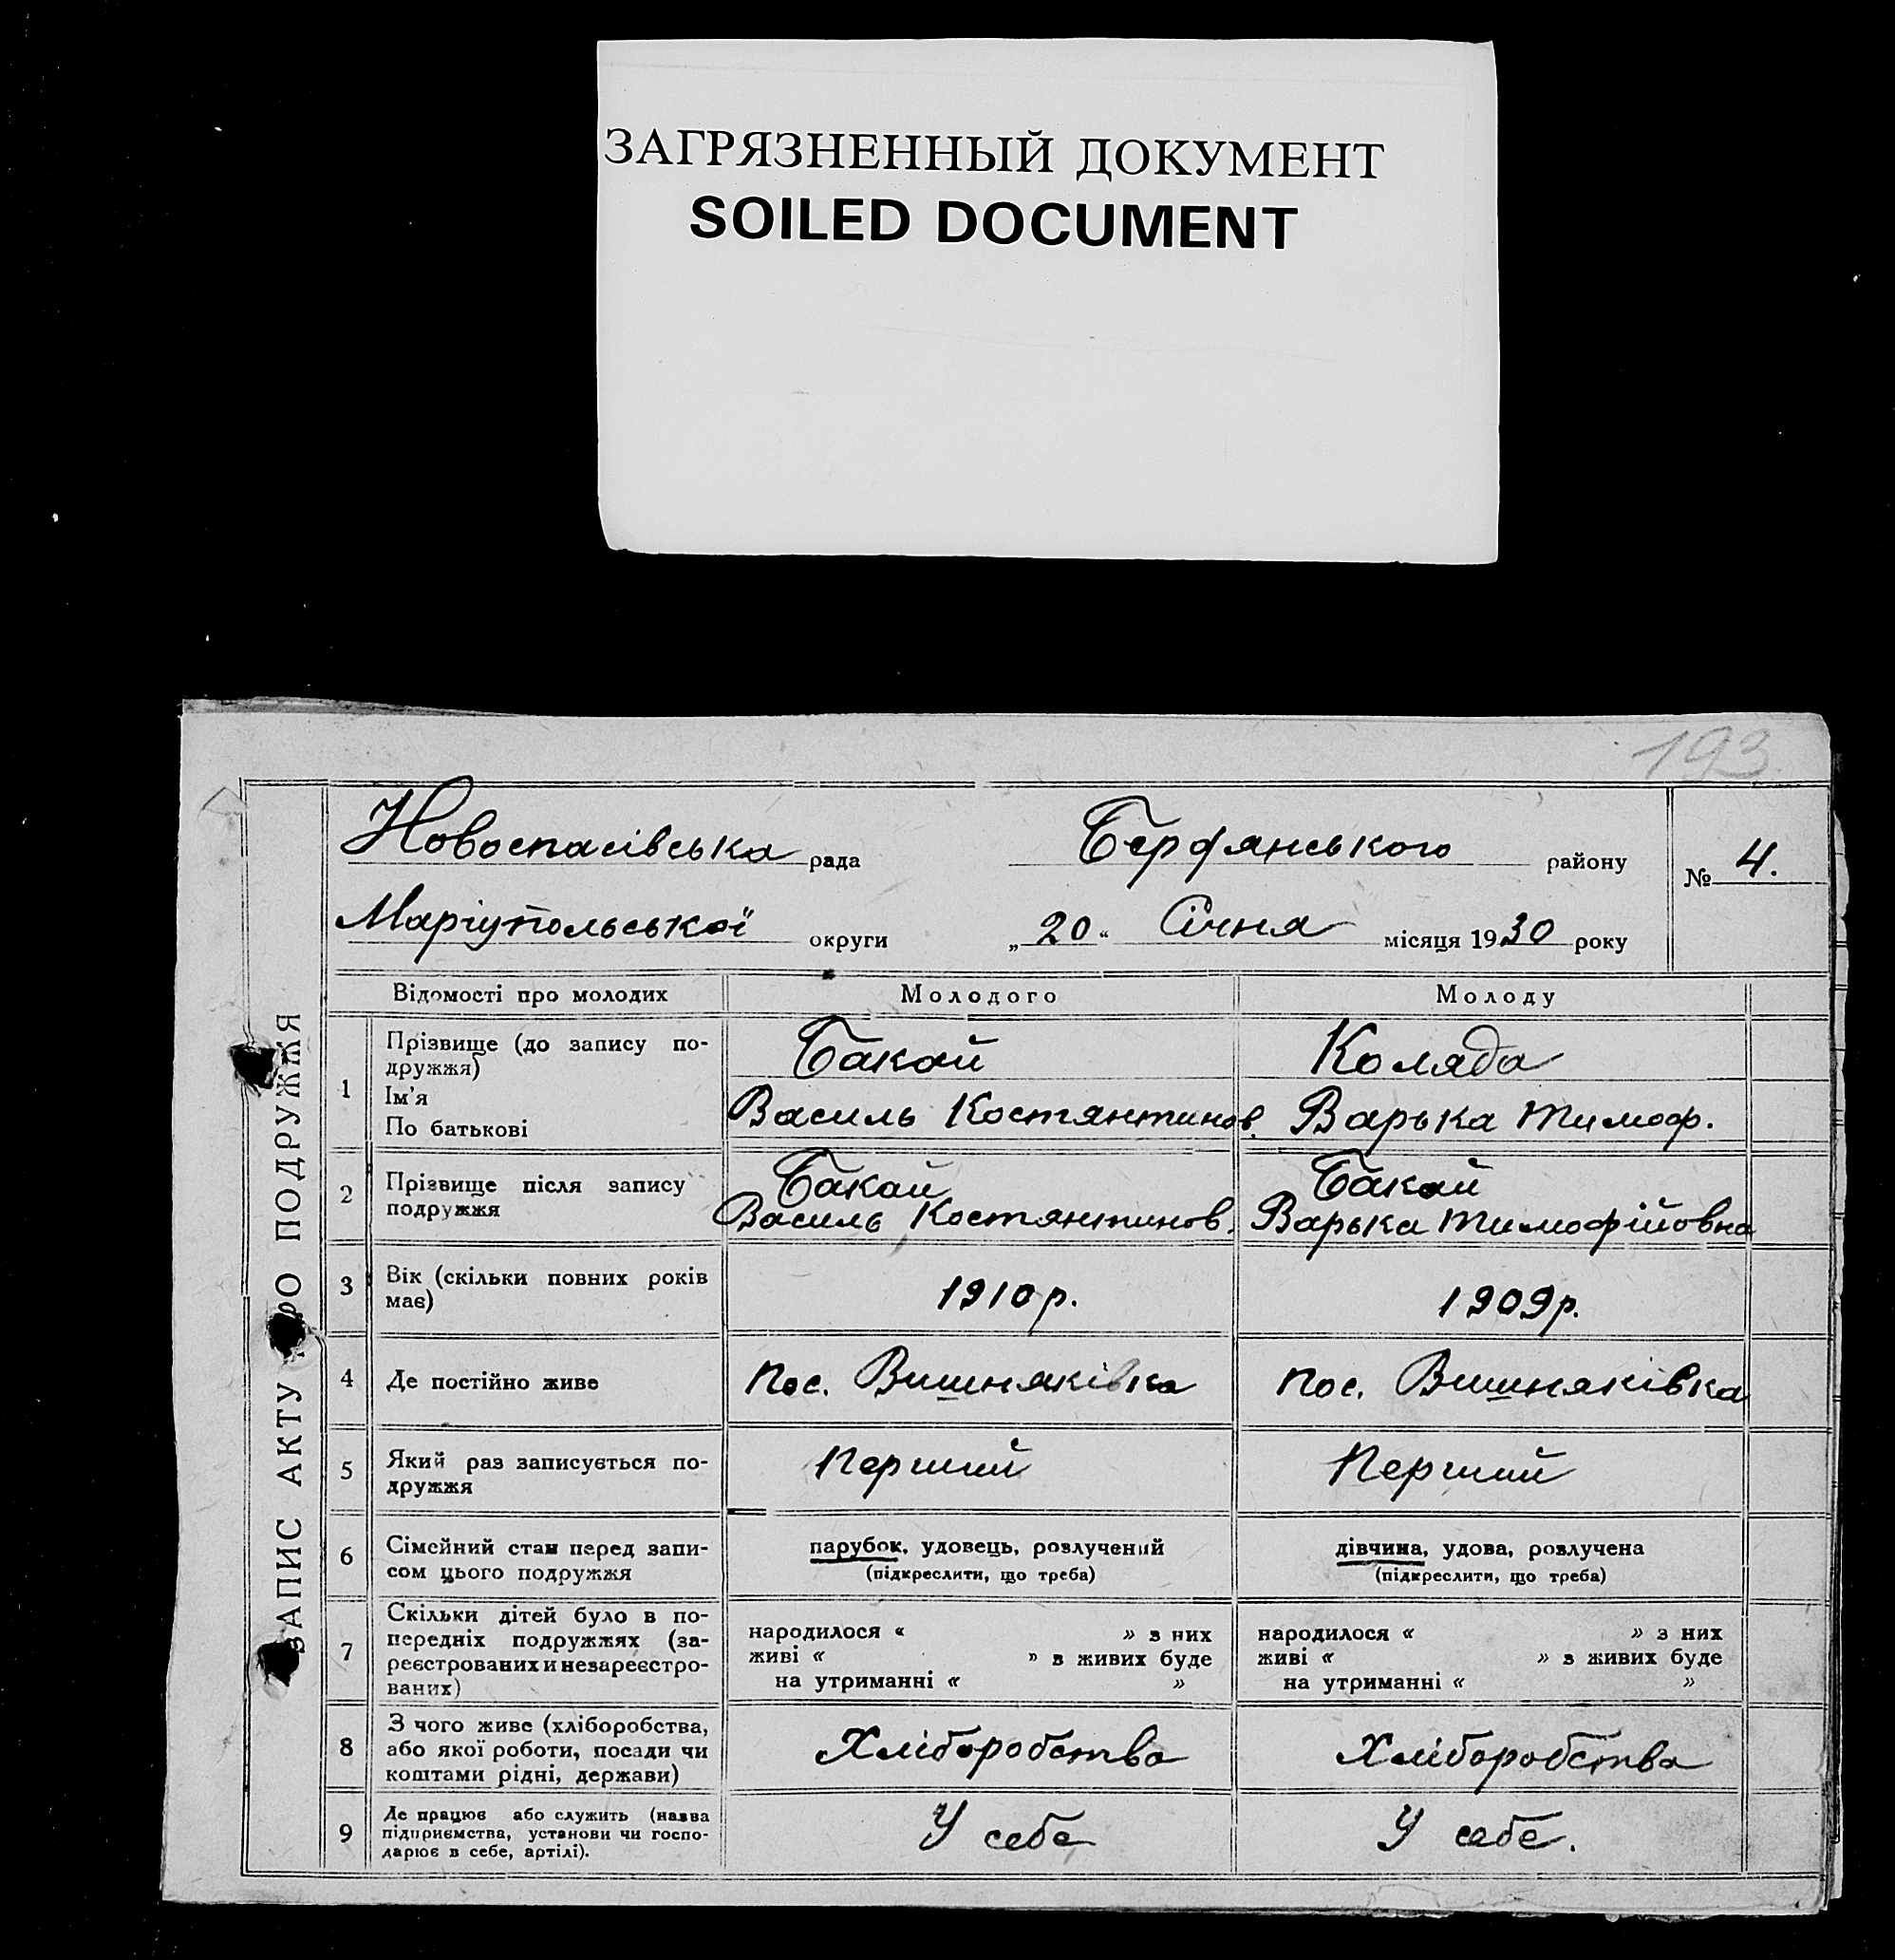 ЗАГРЯЗНЕННЫЙ ДОКУМЕНТ
SOILED DOCUMENT
193
ЗАПИС АКТУ ПРО ПОДРУЖЖЯ
Новоспасівська рада Бердянського району № 4.
Маріупольської округи „20“ Січня місяця 1930 року
Відомості про молодих Молодого Молоду
1 Прізвище (до запису по-
дружжя) Бакай Коляда
Ім'я
По батькові Василь Костянтинов. Варька Тимоф.
2 Прізвище після запису
подружжя Бакай Василь Костянтинов. Бакай Варька Тимофійовна
3 Вік (скільки повних років
має) 1910 р. 1909 р.
4 Де постійно живе пос. Вишняківка пос. Вишняківка
5 Який раз записується по-
дружжя Перший Перший
6 Сімейний стан перед запи-
сом цього подружжя
парубок, удовець, розлучений
(підкреслити, що треба)
дівчина, удова, розлучена
(підкреслити, що треба)
7 Скільки дітей було в по-
передніх подружжях (за-
реєстрованих и незареєстро-
ваних)
народилося « » з них
живі « » в живих буде
на утриманні « »
народилося « » з них
живі « » в живих буде
на утриманні « »
8 З чого живе (хліборобства,
або якої роботи, посади чи
коштами рідні, держави)
Хліборобства Хліборобства
9 Де працює або служить (назва
підприємства, установи чи госпо-
дарює в себе, артілі).
У себе У себе.